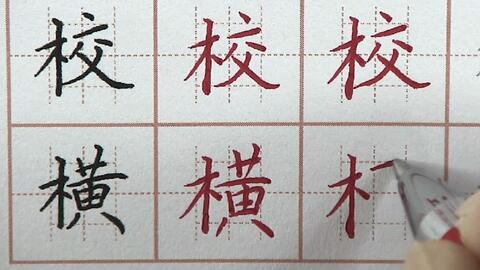 校 校 校
横 横